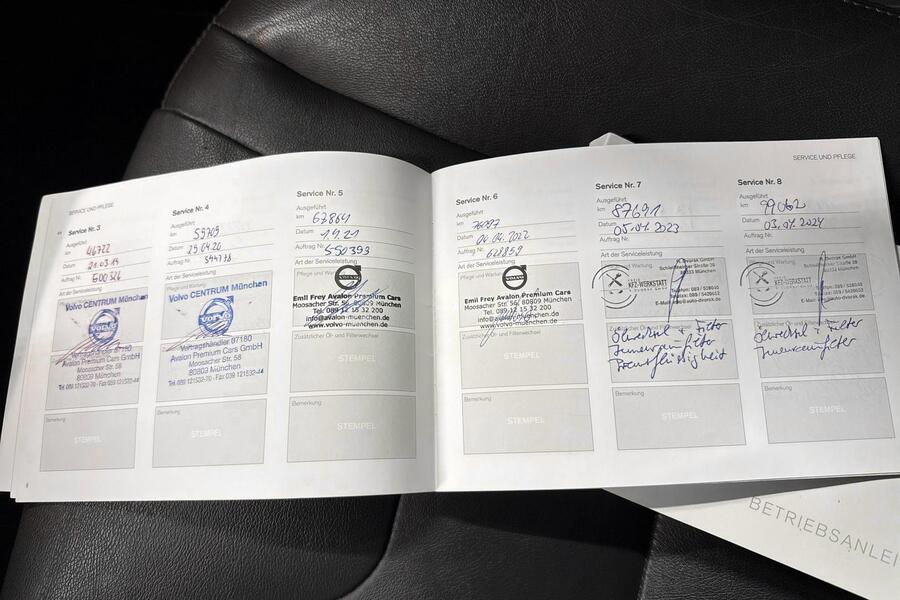 SERVICE UND PFLEGE
Service Nr. 3
Ausgeführt
km 46722
Datum 21.03.19
Auftrag Nr.
Art der Serviceleistung
Volvo CENTRUM München
VOLVO
Vertragshändler 07180
Avalon Premium Cars GmbH
Moosacher Str. 58
80809 München
Tel. 089 121532-70 · Fax 089 121532-44
Bemerkung
STEMPEL
Service Nr. 4
Ausgeführt
km 59709
Datum 29.04.20
Auftrag Nr. 544778
Art der Serviceleistung
Volvo CENTRUM München
VOLVO
Vertragshändler 07180
Avalon Premium Cars GmbH
Moosacher Str. 58
80809 München
Tel. 089 121532-70 · Fax 089 121532-44
Bemerkung
STEMPEL
Service Nr. 5
Ausgeführt
km 67864
Datum 1.9.21
Auftrag Nr. 550393
Art der Serviceleistung
Pflege und Wartung
VOLVO
Emil Frey Avalon Premium Cars
Moosacher Str. 56, 80809 München
Tel. 089 12 15 32 200
info@avalon-muenchen.de
www.volvo-muenchen.de
Zusätzlicher Öl- und Filterwechsel
STEMPEL
Bemerkung
STEMPEL
Service Nr. 6
Ausgeführt
km
Datum 04.04.2022
Auftrag Nr. 628858
Art der Serviceleistung
Pflege und Wartung
VOLVO
Emil Frey Avalon Premium Cars
Moosacher Str. 56, 80809 München
Tel. 089 12 15 32 200
info@avalon-muenchen.de
www.volvo-muenchen.de
Zusätzlicher Öl- und Filterwechsel
STEMPEL
Bemerkung
STEMPEL
SERVICE UND PFLEGE
Service Nr. 7
Ausgeführt
km 87691
Datum 05.04.2023
Auftrag Nr.
Art der Serviceleistung
KFZ-WERKSTATT
Ölwechsel + Filter
Innenraumfilter
Bremsflüssigkeit
Bemerkung
STEMPEL
Service Nr. 8
Ausgeführt
km 99062
Datum 03.04.2024
Auftrag Nr.
Art der Serviceleistung
KFZ-WERKSTATT
Ölwechsel + Filter
Innenraumfilter
Bemerkung
STEMPEL
BETRIEBSANLEI